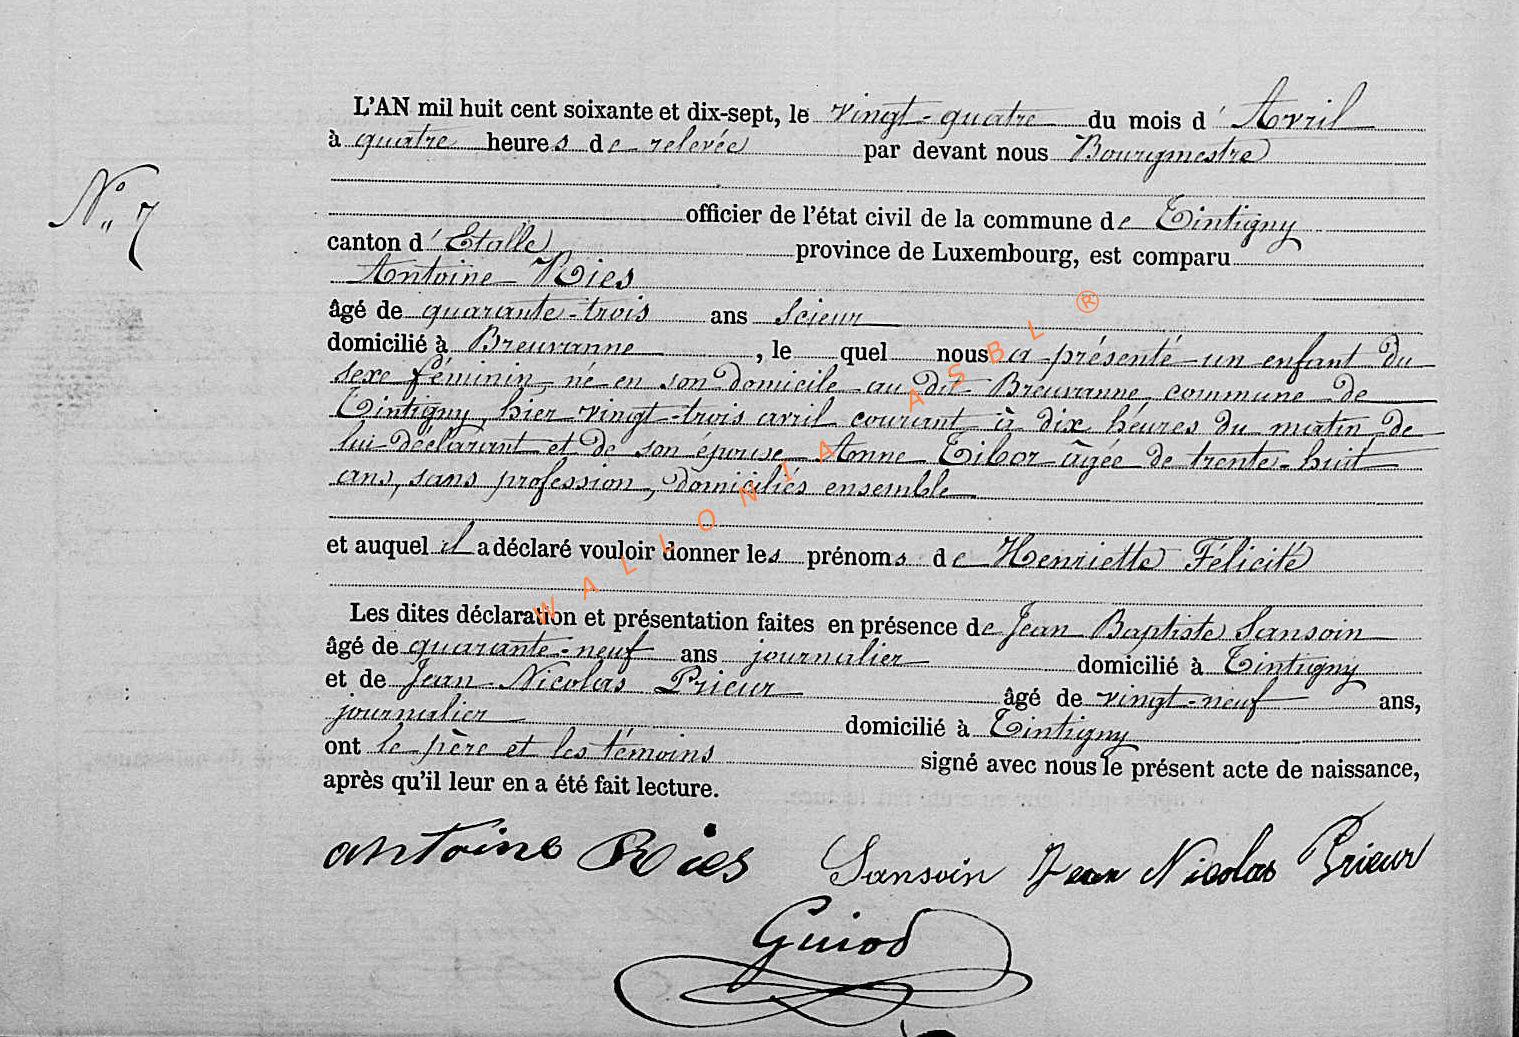 L'AN mil huit cent soixante et dix-sept, le vingt-quatre du mois d' Avril
à quatre heures de relevée par devant nous Bourgmestre
officier de l'état civil de la commune de Tintigny
N° 7
canton d' Etalle province de Luxembourg, est comparu
Antoine Ries
âgé de quarante-trois ans Scieur
domicilié à Breuvanne, le quel nous a présenté un enfant du
sexe féminin, né en son domicile au dit Breuvanne, commune de
Tintigny, hier vingt-trois avril courant à dix heures du matin, de
lui déclarant et de son épouse Anne Tibor âgée de trente-huit
ans, sans profession, domiciliés ensemble
et auquel il a déclaré vouloir donner les prénoms de Henriette Félicité
Les dites déclaration et présentation faites en présence de Jean Baptiste Sansoin
âgé de quarante-neuf ans journalier domicilié à Tintigny
et de Jean Nicolas Prieur âgé de vingt-neuf ans,
journalier domicilié à Tintigny
ont le père et les témoins signé avec nous le présent acte de naissance,
après qu'il leur en a été fait lecture.
antoine Ries Sansoin Jean Nicolas Prieur
Guiod
WALLONIA ASBL ®